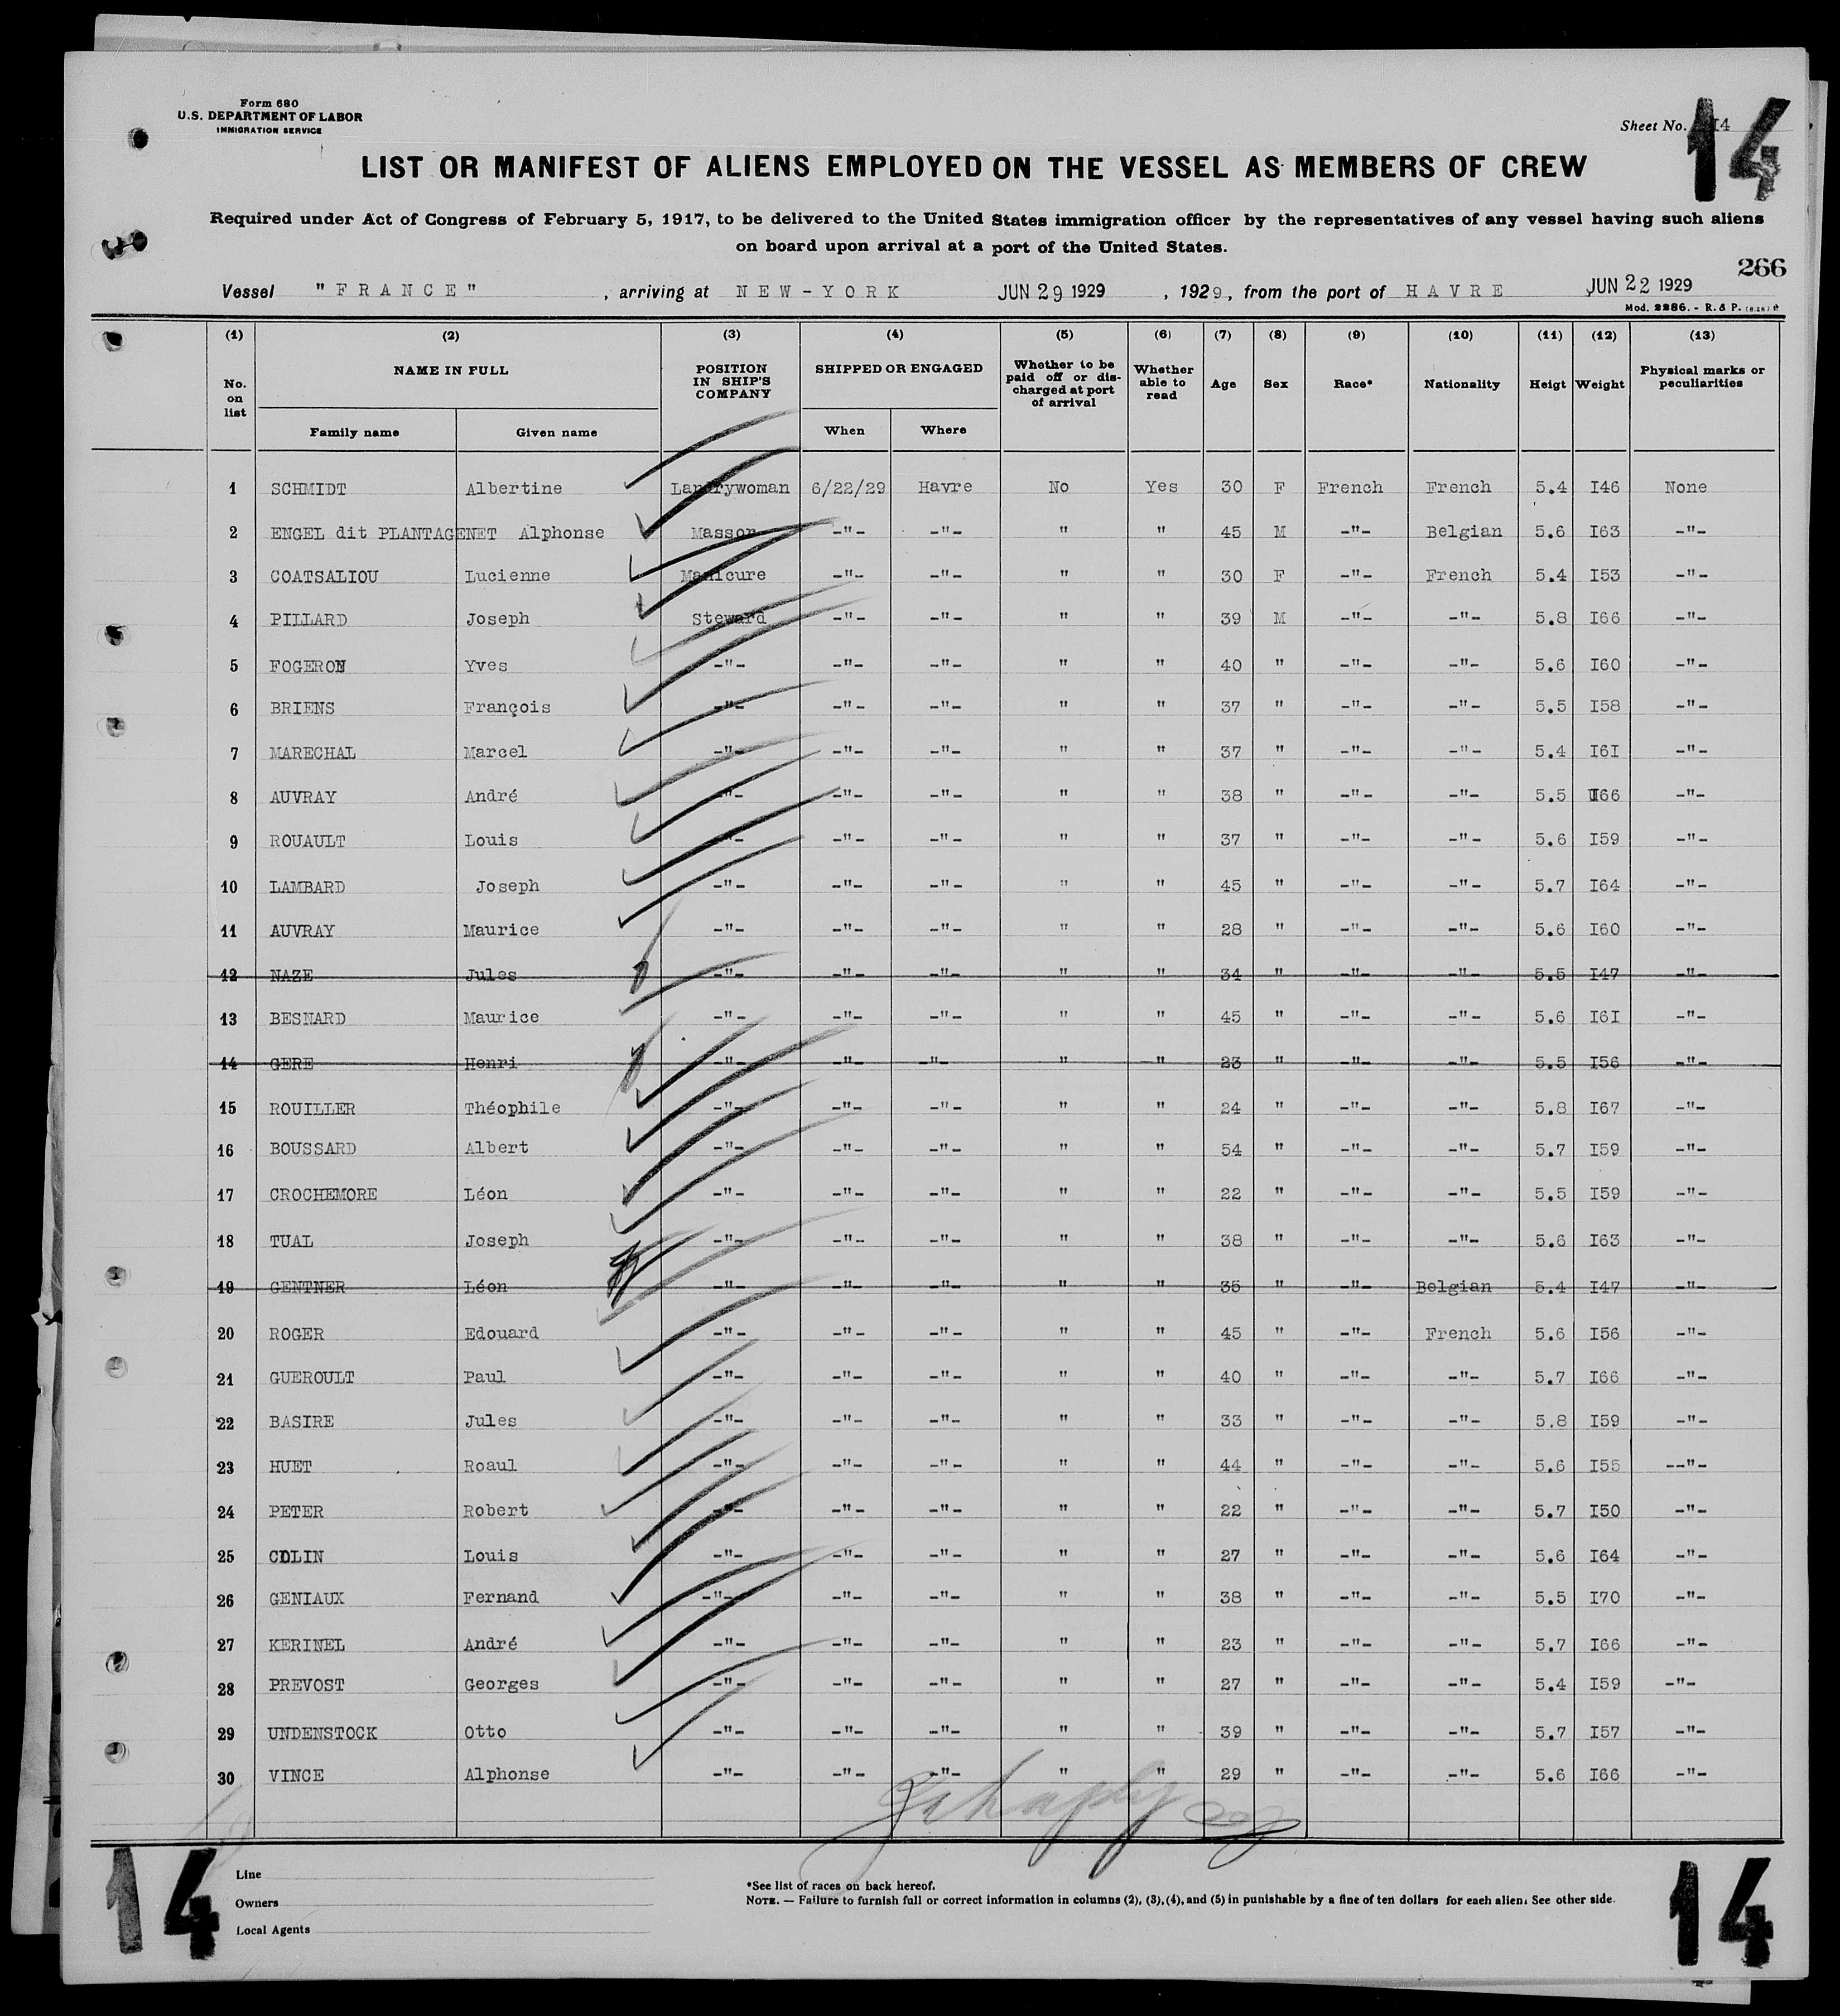 Form 680
U.S. DEPARTMENT OF LABOR
IMMIGRATION SERVICE
Sheet No. 14
14
LIST OR MANIFEST OF ALIENS EMPLOYED ON THE VESSEL AS MEMBERS OF CREW
Required under Act of Congress of February 5, 1917, to be delivered to the United States immigration officer by the representatives of any vessel having such aliens
on board upon arrival at a port of the United States.
266
Vessel "FRANCE", arriving at NEW-YORK JUN 29 1929, 1929, from the port of HAVRE JUN 22 1929
Mod. 2286. - R. & P.
(1) (2) (3) (4) (5) (6) (7) (8) (9) (10) (11) (12) (13)
No. on list NAME IN FULL POSITION IN SHIP'S COMPANY SHIPPED OR ENGAGED Whether to be paid off or discharged at port of arrival Whether able to read Age Sex Race* Nationality Heigt Weight Physical marks or peculiarities
Family name Given name When Where
1 SCHMIDT Albertine Landrywoman 6/22/29 Havre No Yes 30 F French French 5.4 I46 None
2 ENGEL dit PLANTAGENET Alphonse Masson -"- -"- " " 45 M -"- Belgian 5.6 I63 -"-
3 COATSALIOU Lucienne Manicure -"- -"- " " 30 F -"- French 5.4 I53 -"-
4 PILLARD Joseph Steward -"- -"- " " 39 M -"- -"- 5.8 I66 -"-
5 FOGERON Yves -"- -"- -"- " " 40 " -"- -"- 5.6 I60 -"-
6 BRIENS François -"- -"- -"- " " 37 " -"- -"- 5.5 I58 -"-
7 MARECHAL Marcel -"- -"- -"- " " 37 " -"- -"- 5.4 I6I -"-
8 AUVRAY André -"- -"- -"- " " 38 " -"- -"- 5.5 I66 -"-
9 ROUAULT Louis -"- -"- -"- " " 37 " -"- -"- 5.6 I59 -"-
10 LAMBARD Joseph -"- -"- -"- " " 45 " -"- -"- 5.7 I64 -"-
11 AUVRAY Maurice -"- -"- -"- " " 28 " -"- -"- 5.6 I60 -"-
12 NAZE Jules -"- -"- -"- " " 34 " -"- -"- 5.5 I47 -"-
13 BESNARD Maurice -"- -"- -"- " " 45 " -"- -"- 5.6 I6I -"-
14 GERE Henri -"- -"- -"- " -" 23 " -"- -"- 5.5 I56 -"-
15 ROUILLER Théophile -"- -"- -"- " " 24 " -"- -"- 5.8 I67 -"-
16 BOUSSARD Albert -"- -"- -"- " " 54 " -"- -"- 5.7 I59 -"-
17 CROCHEMORE Léon -"- -"- -"- " " 22 " -"- -"- 5.5 I59 -"-
18 TUAL Joseph -"- -"- -"- " " 38 " -"- -"- 5.6 I63 -"-
19 GENTNER Léon -"- -"- -"- " " 35 " -"- Belgian 5.4 I47 -"-
20 ROGER Edouard -"- -"- -"- " " 45 " -"- French 5.6 I56 -"-
21 GUEROULT Paul -"- -"- -"- " " 40 " -"- -"- 5.7 I66 -"-
22 BASIRE Jules -"- -"- -"- " " 33 " -"- -"- 5.8 I59 -"-
23 HUET Roaul -"- -"- -"- " " 44 " -"- -"- 5.6 I55 --"-
24 PETER Robert -"- -"- -"- " " 22 " -"- -"- 5.7 I50 -"-
25 COLIN Louis -"- -"- -"- " " 27 " -"- -"- 5.6 I64 -"-
26 GENIAUX Fernand -"- -"- -"- " " 38 " -"- -"- 5.5 I70 -"-
27 KERINEL André -"- -"- -"- " " 23 " -"- -"- 5.7 I66 -"-
28 PREVOST Georges -"- -"- -"- " " 27 " -"- -"- 5.4 I59 -"-
29 UNDENSTOCK Otto -"- -"- -"- " " 39 " -"- -"- 5.7 I57 -"-
30 VINCE Alphonse -"- -"- -"- " " 29 " -"- -"- 5.6 I66 -"-
14
Line
Owners
Local Agents
*See list of races on back hereof.
NOTE. — Failure to furnish full or correct information in columns (2), (3), (4), and (5) in punishable by a fine of ten dollars for each alien. See other side.
14